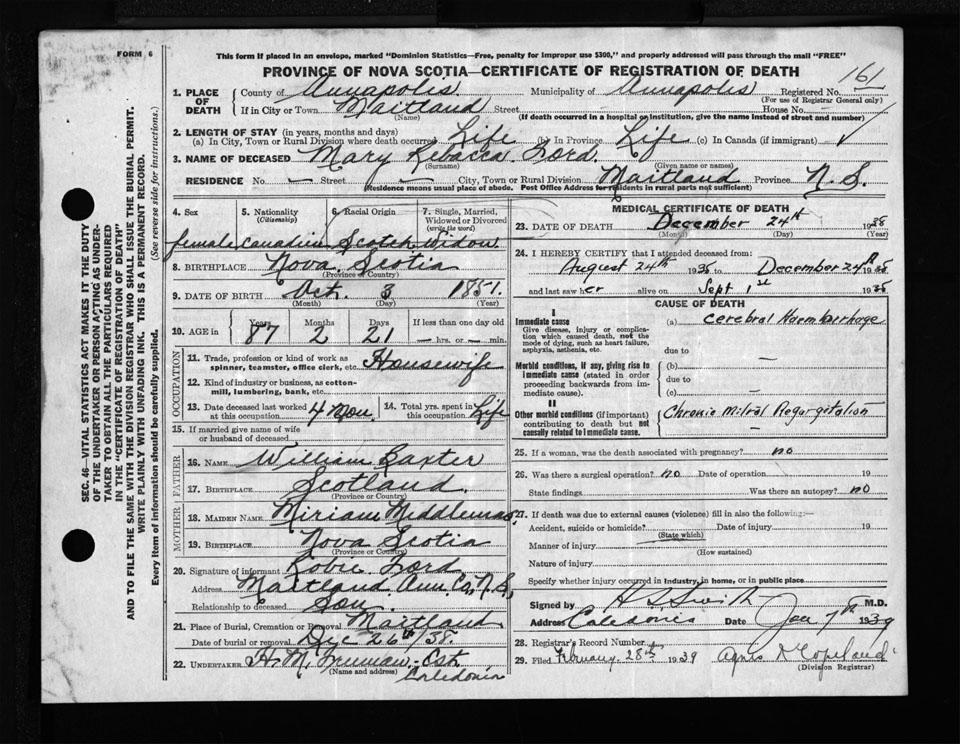 FORM 6
This form if placed in an envelope, marked "Dominion Statistics—Free, penalty for improper use $300," and properly addressed will pass through the mail "FREE"
PROVINCE OF NOVA SCOTIA—CERTIFICATE OF REGISTRATION OF DEATH
161
1. PLACE OF DEATH
County of Annapolis Municipality of Annapolis Registered No.
(For use of Registrar General only)
If in City or Town Maitland Street House No.
(Name) (If death occurred in a hospital or institution, give the name instead of street and number)
2. LENGTH OF STAY (in years, months and days)
(a) In City, Town or Rural Division where death occurred Life (b) In Province Life (c) In Canada (if immigrant)
3. NAME OF DECEASED Mary Rebacca Lord.
(Surname) (Given name or names)
RESIDENCE No. — Street — City, Town or Rural Division Maitland Province N.S.
(Residence means usual place of abode. Post Office Address for residents in rural parts not sufficient)
4. Sex
female
5. Nationality
(Citizenship)
Canadian
6. Racial Origin
Scotch
7. Single, Married, Widowed or Divorced
(write the word)
Widow
8. BIRTHPLACE Nova Scotia
(Province or Country)
9. DATE OF BIRTH Oct. 3 1851.
(Month) (Day) (Year)
10. AGE in
Years Months Days If less than one day old
87 2 21 — hrs. or — min.
OCCUPATION
11. Trade, profession or kind of work as spinner, teamster, office clerk, etc. Housewife
12. Kind of industry or business, as cotton-mill, lumbering, bank, etc.
13. Date deceased last worked at this occupation 4 mon
14. Total yrs. spent in this occupation Life
15. If married give name of wife or husband of deceased
FATHER
16. NAME William Baxter
17. BIRTHPLACE Scotland.
(Province or Country)
MOTHER
18. MAIDEN NAME Miriam Middlemas
19. BIRTHPLACE Nova Scotia
(Province or Country)
20. Signature of informant Lord
Address Maitland Ann Co, N.S,
Relationship to deceased Son.
21. Place of Burial, Cremation or Removal Maitland
Date of burial or removal Dec 26th/38.
22. UNDERTAKER H. M.
(Name and address) Caledonia
MEDICAL CERTIFICATE OF DEATH
23. DATE OF DEATH December 24th 1938
(Month) (Day) (Year)
24. I HEREBY CERTIFY that I attended deceased from:
August 24th 1938 to December 24th 1938
and last saw her alive on Sept 1st 1938
CAUSE OF DEATH
I
Immediate cause
Give disease, injury or complication which caused death, not the mode of dying, such as heart failure, asphyxia, asthenia, etc.
(a) Cerebral Haemhorrhage
due to —
Morbid conditions, if any, giving rise to immediate cause (stated in order proceeding backwards from immediate cause).
(b)
due to —
(c) —
II
Other morbid conditions (if important) contributing to death but not causally related to immediate cause.
Chronic Mitral Regorgetation
—
25. If a woman, was the death associated with pregnancy? no
26. Was there a surgical operation? no Date of operation 19
State findings Was there an autopsy? no
27. If death was due to external causes (violence) fill in also the following:—
Accident, suicide or homicide? Date of injury 19
(State which)
Manner of injury
(How sustained)
Nature of injury
Specify whether injury occurred in industry, in home, or in public place
Signed by H S Smith M.D.
Address Caledonia Jan 7th 1939
28. Registrar's Record Number
29. Filed February 28th 1939 Agnes
(Division Registrar)
SEC. 46—VITAL STATISTICS ACT MAKES IT THE DUTY
OF THE UNDERTAKER OR PERSON ACTING AS UNDER-
TAKER TO OBTAIN ALL THE PARTICULARS REQUIRED
IN THE "CERTIFICATE OF REGISTRATION OF DEATH"
AND TO FILE THE SAME WITH THE DIVISION REGISTRAR WHO SHALL ISSUE THE BURIAL PERMIT.
WRITE PLAINLY WITH UNFADING INK. THIS IS A PERMANENT RECORD.
Every item of information should be carefully supplied. (See reverse side for instructions.)